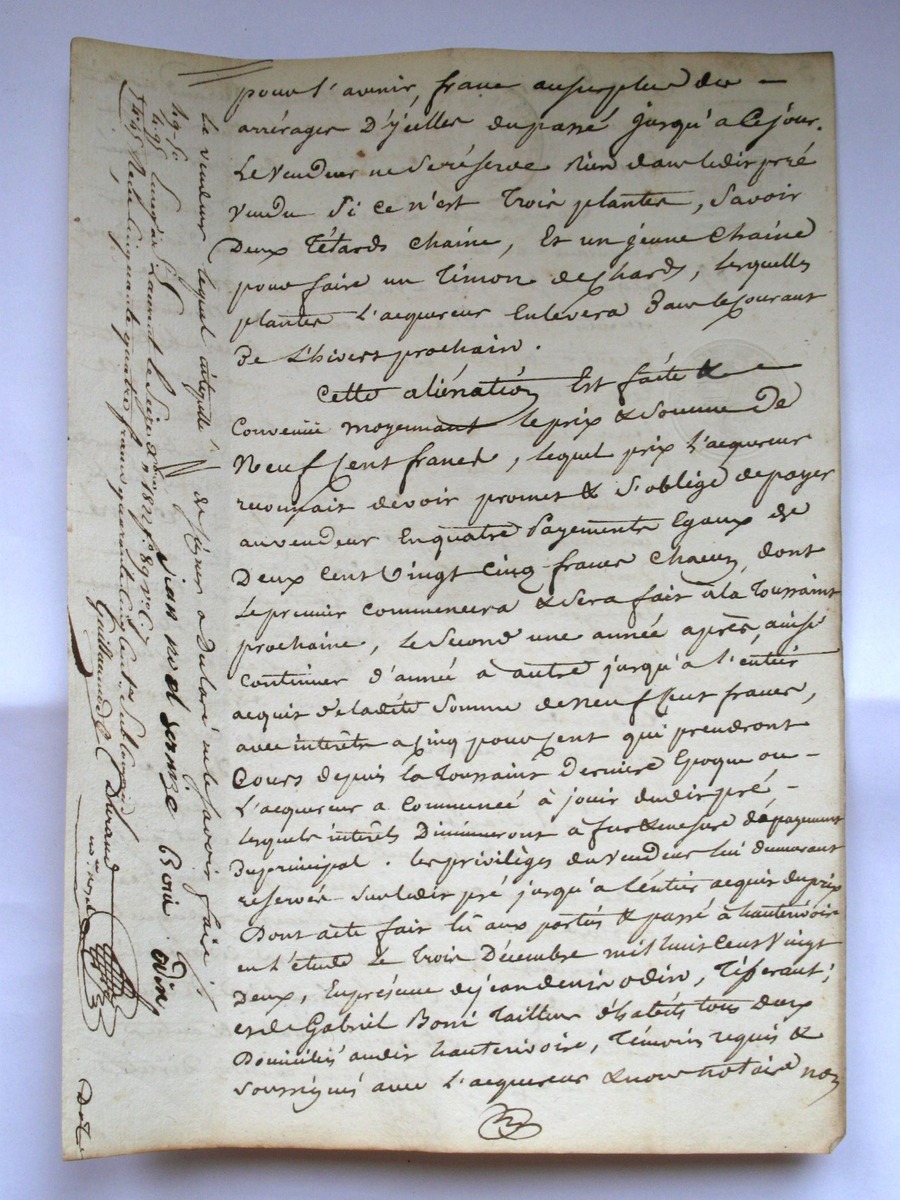 pour l'avenir, franc au surplus des —
arrérages d'ycelles du passé jusqu'a ce jour.
Le vendeur ne se réserve rien dans ledit pré
vendu si ce n'est trois plantes, savoir
deux têtards chaine, et un jeune chaine
pour faire un timon de chard, lesquelles
plantes l'acquereur enlevera dans le courant
de l'hivert prochain.
Cette aliénation est faite &
convenüe moyennant le prix & somme de
neuf cent francs, lequel prix l'acquereur
reconnait devoir promet & s'oblige de payer
au vendeur en quatre payements egaux de
deux cent vingt cinq francs chacun, dont
le premier commencera & sera fait à la toussaint
prochaine, le second une année après, ainsi
continuer d'année à autre jusqu'à l'entier
acquit de ladite somme de neuf cent francs,
avec intérêts a cinq pour cent qui prendront
cours depuis la toussaint derniere epoque ou —
l'acquereur a commencé à jouir dudit pré, —
lesquels intérêts diminueront à fur & mesure de payement
du principal. les privilèges du vendeur lui demeurant
réservés sur ledit pré jusqu'a l'entier acquit du prix
Dont acte fait lû aux parties & passé à hauterivoire
en l'étude le trois décembre mil huit cent vingt
deux, en présence de jean denis odin, tisserant;
et de Gabriel Boni tailleur d'habits tous deux
domiciliés audit hauterivoire, témoins requis &
soussignés avec l'acquereur & nous notaire non
le vendeur lequel interpellé de signer a déclaré ne le savoir faire
jean noel Boni odin
Enrgé à St Laurent le seize Xbre 1822 f° 89
cinquante quatre francs quarante cinq cent
Guillaumond
Durand
nore royal
Dot